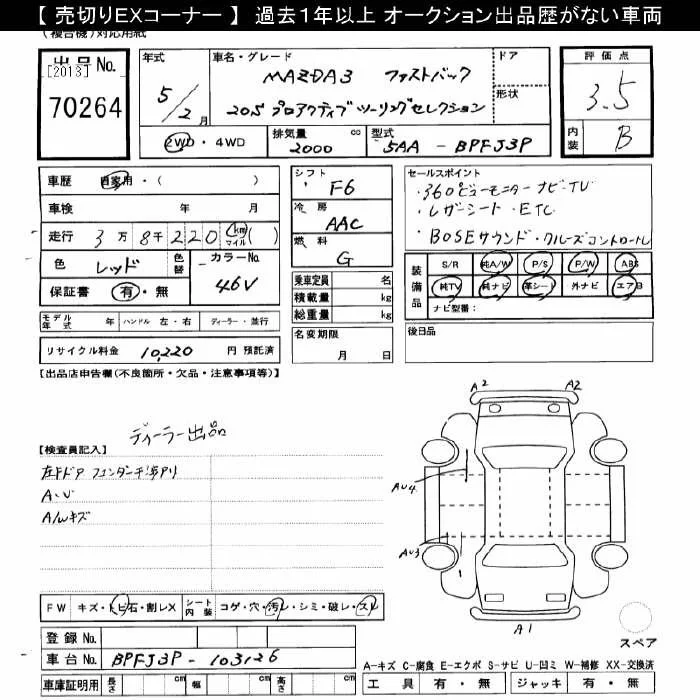 【 売切りEXコーナー 】 過去１年以上 オークション出品歴がない車両
(複合機)対応用紙
出品No. [2013] 70264
年式 5/2月
車名・グレード MAZDA3 ファストバック
20S プロアクティブ ツーリングセレクション
ドア
形状
2WD・4WD 排気量 2000 cc 型式 5AA - BPFJ3P
評価点 3.5
内装 B
車歴 自家用・( )
車検 年 月
走行 3万8千220 km マイル ( )
色 レッド 色替 カラーNo. 46V
保証書 有・無
モデル年式 年 ハンドル 左・右 ディーラー・並行
リサイクル料金 10,220 円 預託済
シフト F6
冷房 AAC
燃料 G
乗車定員 名
積載量 kg
総重量 kg
名変期限 月 日
セールスポイント
・360°ビューモニター ナビ・TV
・レザーシート・ETC
・BOSEサウンド・クルーズコントロール
装備品 S/R 純A/W P/S P/W ABS
純TV 純ナビ 革シート 外ナビ エアB
ナビ型番:
後日品
【出品店申告欄(不良箇所・欠品・注意事項等)】
ディーラー出品
【検査員記入】
A・U
A/Wキズ
A2 A2
AU4
AU3
A1
スペア
FW キズ・トビ石・割レX シート内装 コゲ・穴・汚レ・シミ・破レ・スレ
登録No.
車台No. BPFJ3P - 103126
車庫証明用 長さ cm 幅 cm 高さ cm
A-キズ C-腐食 E-エクボ S-サビ U-凹ミ W-補修 XX-交換済
工具 有・無 ジャッキ 有・無